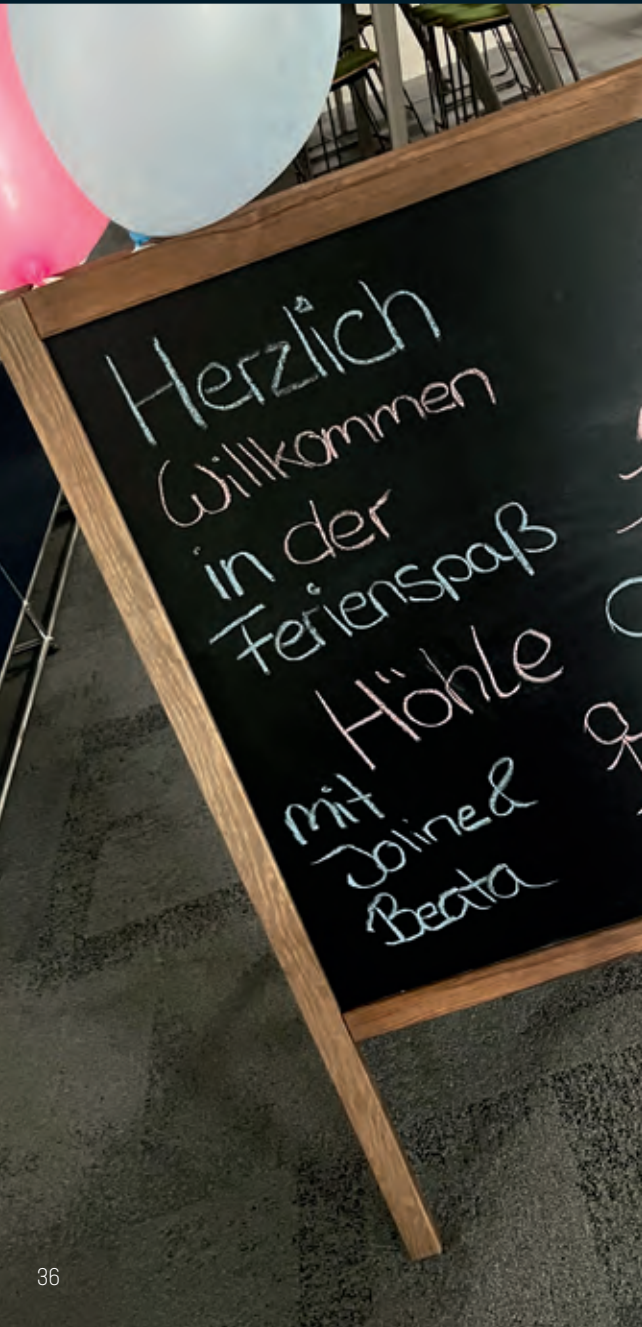 Herzlich
Willkommen
in der
Ferienspaß
Höhle
mit
Joline &
Beata
36